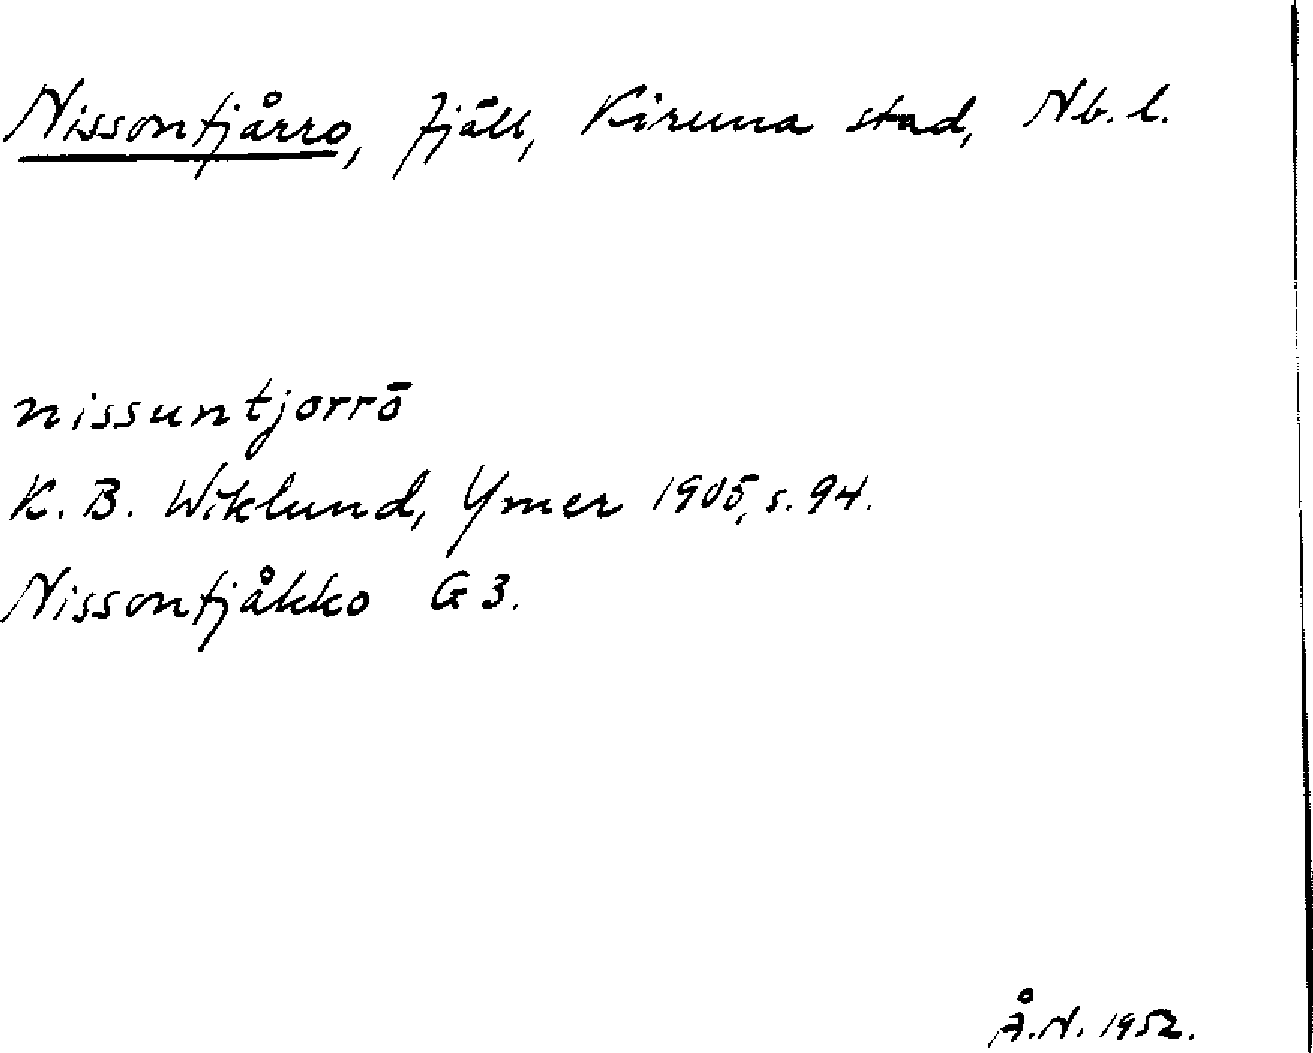 Nissontjårro, fjäll, Kiruna stad, Nb. l.
nissuntjorrō
K. B. Wiklund, Ymer 1905, s. 94.
Nissontjåkko G 3.
Å. N. 1952.